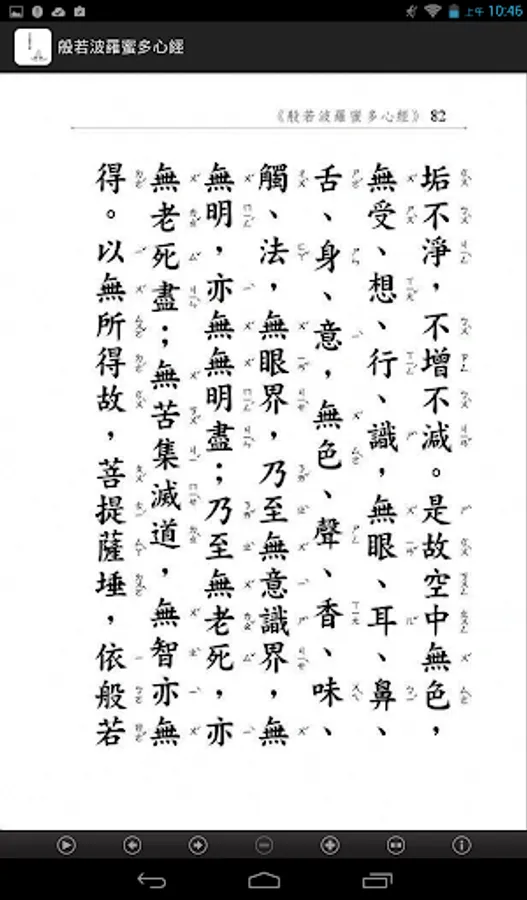 上午 10:46
般若波羅蜜多心經
《般若波羅蜜多心經》 82
垢不淨，不增不減。是故空中無色，
無受、想、行、識，無眼、耳、鼻、
舌、身、意，無色、聲、香、味、
觸、法，無眼界，乃至無意識界，無
無明，亦無無明盡；乃至無老死，亦
無老死盡；無苦集滅道，無智亦無
得。以無所得故，菩提薩埵，依般若